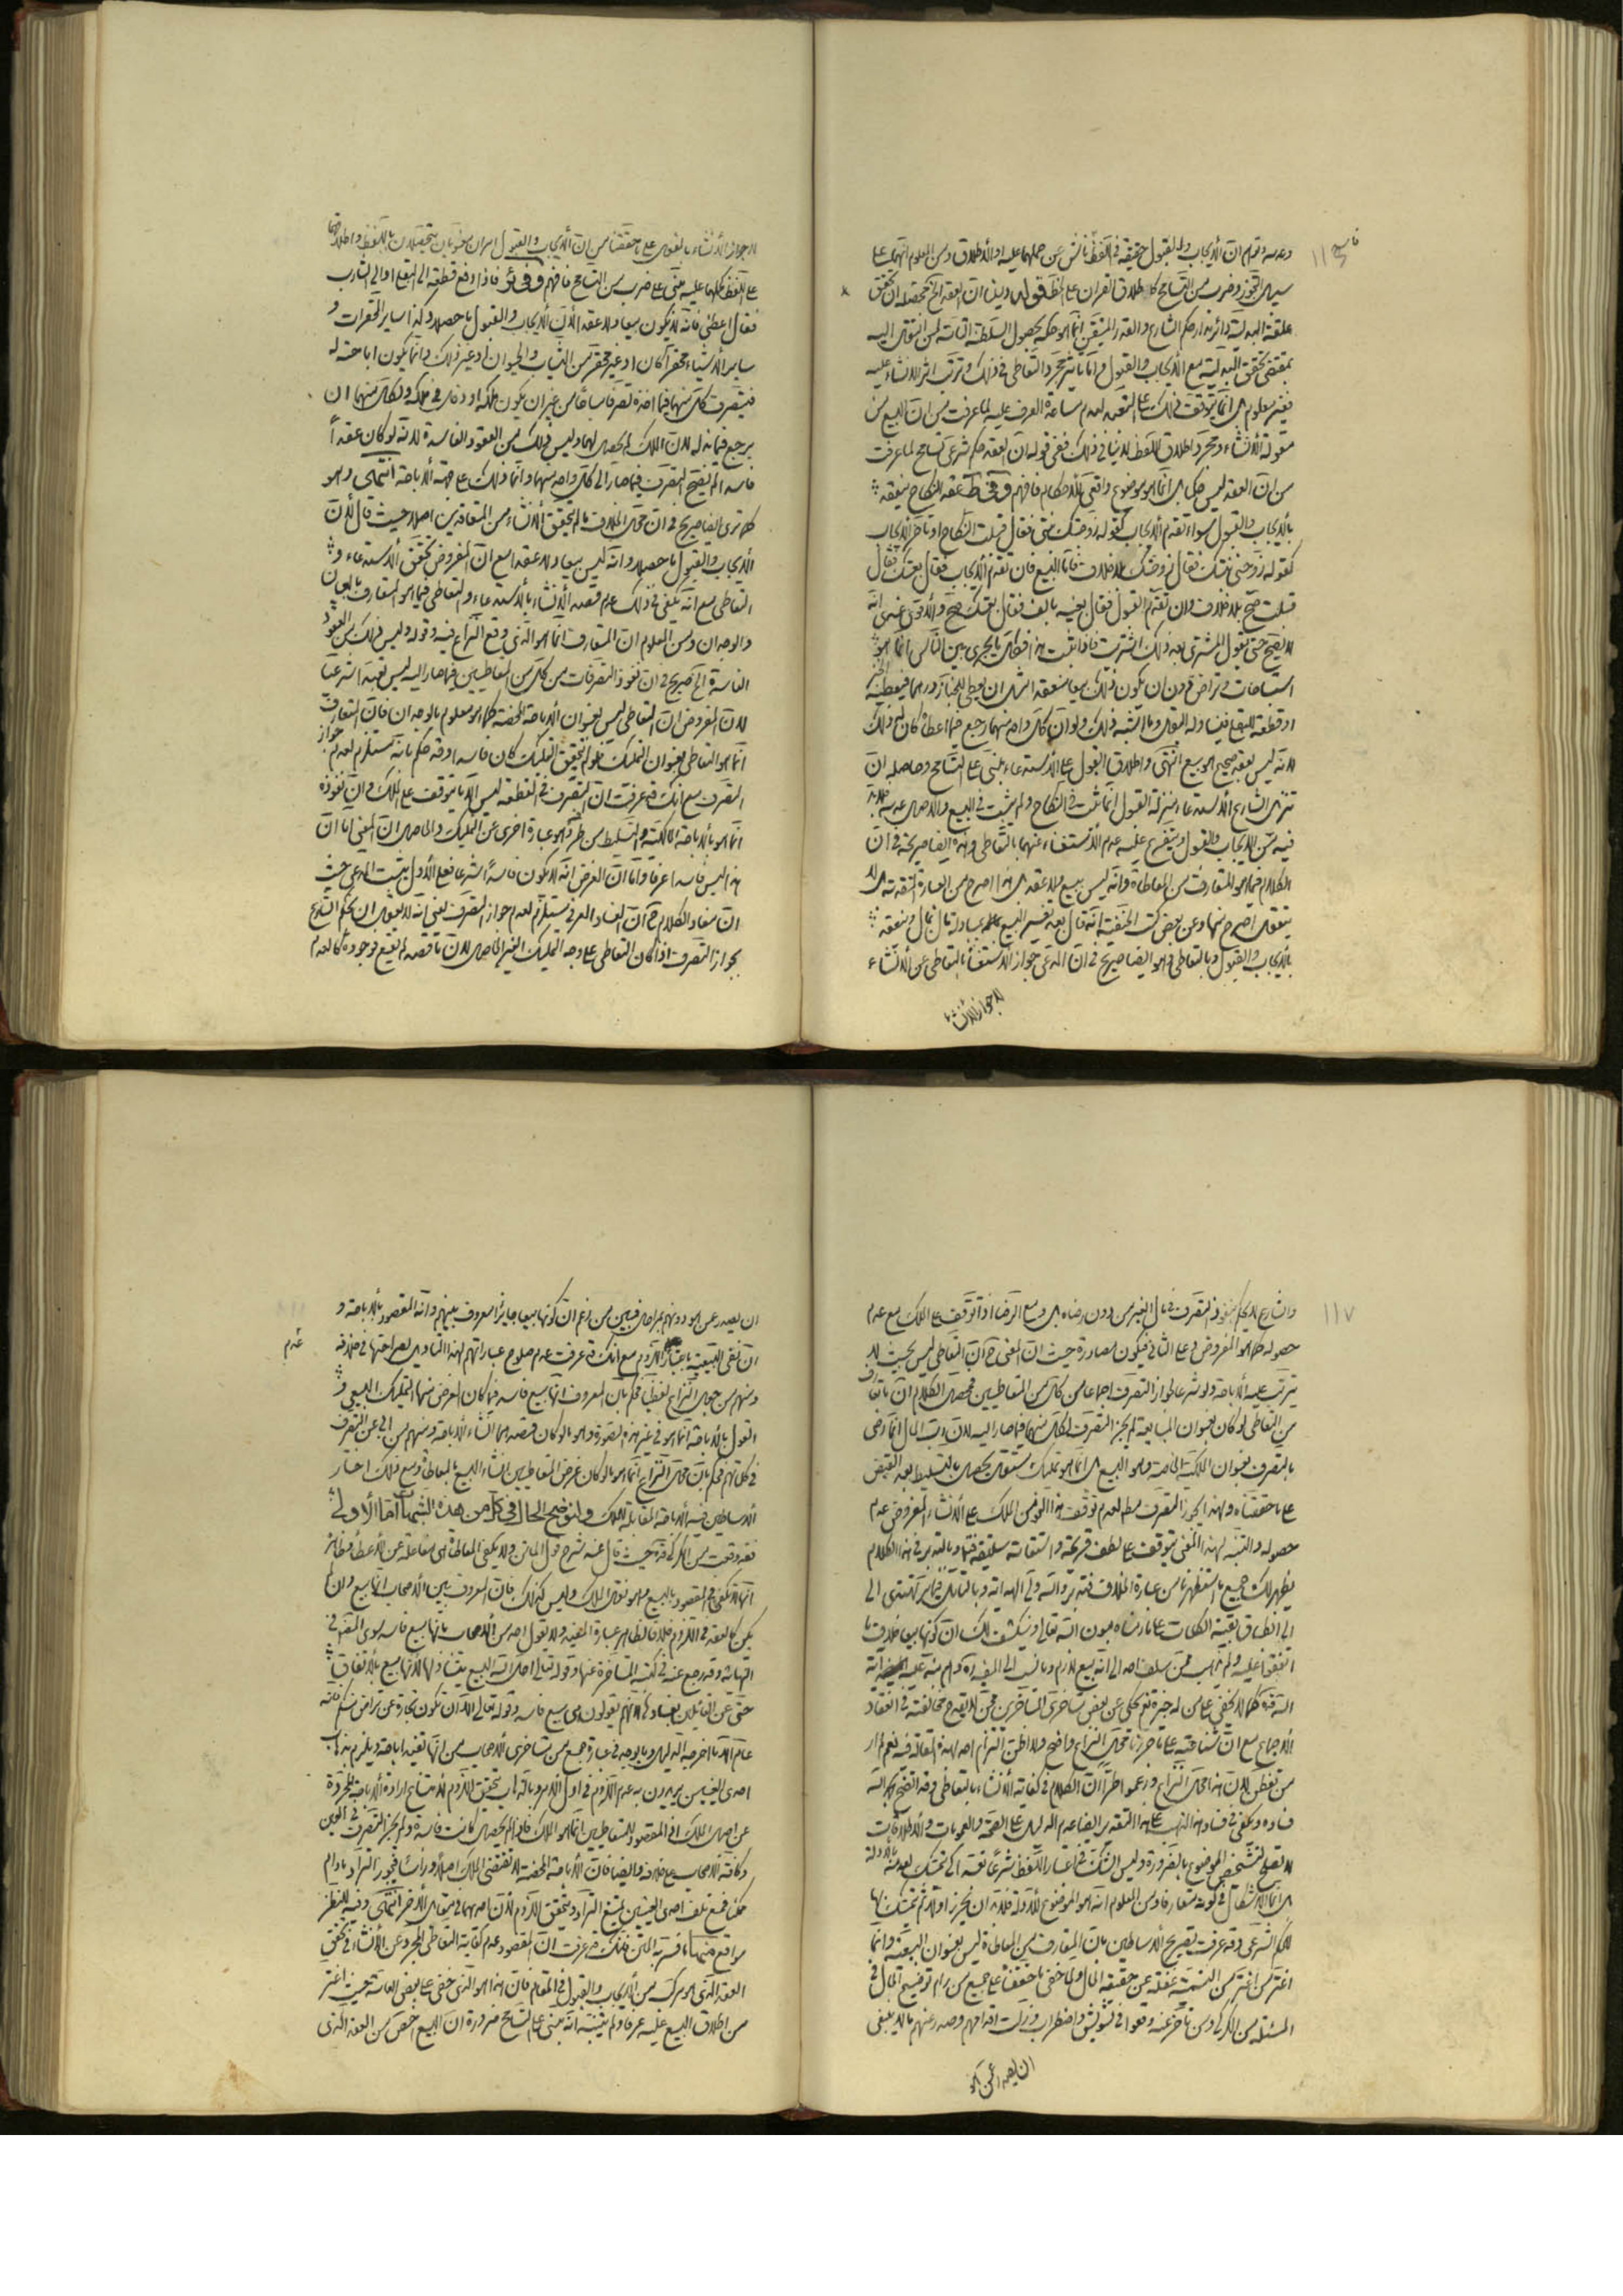 وعدمه وتوهم ان الايجاب والقبول حقيقة في اللفظ ناش عن حملهما عليه والاطلاق ومن المعلوم انهما على
سبيل التجوز وضرب من التسامح كاطلاق القران على الخط قوله
علقة البدلية دائرة مدار حكم الشارع والقدر المتيقن انما هو حكمه بحصول السلطنة التامة لمن انتقل اليه
بمقتضى تحقق البدلية مع الايجاب والقبول واما تاثير مجرد التعاطي في ذلك وترتب اثر الانشاء عليه
فغير معلوم بل انما يتوقف ذلك على التعبد لعدم مساعدة العرف عليه لما عرفت من ان البيع من
مقولة الانشاء ومجرد اطلاق اللفظ لا ينافي ذلك ففي قوله ان العقد حكم شرعي تسامح لما عرفت
من ان العقد ليس حكما بل انما هو موضوع واقعي للاحكام فافهم وفي ط عقد النكاح ينعقد
بالايجاب والقبول سواء تقدم الايجاب كقوله زوجتك بنتي فقال قبلت النكاح او تاخر الايجاب
كقوله زوجني بنتك فقال زوجتك بلا خلاف فاما البيع فان تقدم الايجاب فقال بعتك فقال
قبلت صح بلا خلاف وان تقدم القبول فقال بعنيه بالف فقال بعتك صح والاقوى عندي انه
لا يصح حتى يقول المشتري بعد ذلك اشتريت فاذا ثبت هذا فكل ما يجري بين الناس انما هو
استباحات وتراض دون ان يكون ذلك بيعا منعقدا مثل ان يعطي للخباز درهما فيعطيه الخبز
او قطعة للبقلي فيناوله البقل وما اشبه ذلك ولو ان كل واحد منهما رجع فيما اعطاه كان له ذلك
لانه ليس بعقد صحيح هو بيع انتهى واطلاق القبول على الاستدعاء مبني على التسامح وحاصله ان
تنزيل الشارع الاستدعاء منزلة القبول انما ثبت في النكاح ولم يثبت في البيع والاصل عدمه فلا بد
فيه من الايجاب والقبول ويتفرع عليه عدم الاستغناء عنهما بالتعاطي وهذه ايضا صريحة في ان
الكلام فيما هو المتعارف من المعاطاة وانه ليس ببيع ولا عقد بل هذا اصرح من العبارة المتقدمة بل لا
يتعقل اصرح منها وعن بعض كتب الحنفية انه قال بعد تفسير البيع بمبادلة مال بمال وينعقد
بالايجاب والقبول وبالتعاطي وهو ايضا صريح في ان المدعى جواز الاستغناء بالتعاطي عن الانشاء
لا جواز الانشاء
لا جواز الانشاء بالفعل على ما حققنا من ان الايجاب والقبول امران معنويان يتحصلان باللفظ واطلاقهما
على اللفظ حملهما عليه مبني على ضرب من التسامح فافهم فاذا دفع قطعة الى البقلي او الى الشارب
فقال اعطني فانه لا يكون بيعا ولا عقدا لان الايجاب والقبول ما حصلا وكذا سائر المحقرات و
سائر الاشياء محقرا كان او غير محقر من الثياب والحيوان او غير ذلك وانما يكون اباحة له
فيتصرف كل منهما فيما اخذه تصرفا مباحا من غير ان يكون ملكه او دخل في ملكه ولكل منهما ان
يرجع فيما بذله لان الملك لم يحصل لهما وليس ذلك من العقود الفاسدة لانه لو كان عقدا
فاسدا لم يصح التصرف فيما صار الى كل واحد منهما وانما ذلك على جهة الاباحة انتهى وهو
كما ترى ايضا صريح في ان محل الخلاف ما لم يتحقق الانشاء من المتعاقدين اصلا حيث قال لان
الايجاب والقبول ما حصلا وانه ليس بيعا ولا عقدا مع ان المفروض تحقق الاستدعاء و
التعاطي مع انه يكفي في ذلك عدم قصد الانشاء بالاستدعاء والتعاطي فيما هو المتعارف بالعيان
والوجدان ومن المعلوم ان المتعارف انما هو الذي وقع النزاع فيه وقوله وليس ذلك من العقود
الفاسدة الخ صريح في ان نفوذ التصرفات من كل من المتعاطيين فيما صار اليه ليس تعبدا شرعيا
لان المفروض ان التعاطي ليس بعنوان الاباحة المحضة كما هو معلوم بالوجدان فان المتعارف
انما هو التعاطي بعنوان التمليك فلو لم يتحقق التمليك كان فاسدا وقد حكم بانه مستلزم لعدم جواز
التصرف مع انك قد عرفت ان التصرف في القطعة ليس الا ما يتوقف على الملك وان نفوذه
انما هو بالاباحة المالكية والتسليط من طرفه وهو عبارة اخرى عن التمليك والحاصل ان المعنى اما ان
هذا ليس فاسدا عرفا واما ان الغرض انه لا يكون فاسدا شرعا فعلى الاول يثبت المدعى حيث
ان مفاد الكلام ح ان الفساد العرفي مستلزم لعدم جواز التصرف يعني انه لا يعقل ان يحكم الشارع
بجواز التصرف اذا كان التعاطي على وجه التمليك الغير الحاصل لان ما قصد لم يقع فوجوده كالعدم
١١٧
والشارع لا يحكم بنفوذ التصرف في مال الغير من دون رضاه بل ومع الرضا اذا توقف على الملك مع عدم
حصوله كما هو المفروض وعلى الثاني فيكون مصادرة حيث ان المعنى ح ان التعاطي ليس بحيث لا
يترتب عليه الاباحة ولو شرعا لجواز التصرف اجماعا من كل من المتعاطيين فمحصل الكلام ان ما تعارف
من التعاطي لو كان بعنوان المبايعة لم يجز التصرف لكل منهما فيما صار اليه لان رب المال انما رضي
بالتصرف بعنوان الملكية الخاصة وهو البيع بل انما هو تمليك مستقل يحصل بالتسليط بعد القبض
على ما حققناه ولهذا يجوز التصرف مطلقا لعدم توقف هذا النحو من الملك على الانشاء المفروض عدم
حصوله والتنبه لهذا المعنى يتوقف على لطف قريحة واستقامة سليقة وبالتدبر في هذا الكلام
يظهر لك جميع ما استظهرنا من عبارة الخلاف فتدبر والله ولي الهداية
الى انطباق بقية الكلمات على ما ذكرناه بعون الله تعالى وينكشف لك ان كونها بيعا خلاف ما
اتفقوا عليه ولم يذهب ممن سلف احد الى انه بيع لازم وما نسب الى المفيد ره كلام منه عليه
السرقة كما لا يخفى على من له خبرة نعم حكي عن بعض متاخري المتاخرين ممن لا يقدح مخالفته في انعقاد
الاجماع مع ان شناعته على ما حررنا محل النزاع واضح ولا اظن التزام احد بهذه المقالة
من تفطن لان هذا محل النزاع وزعموا طرا ان الكلام في كفاية الانشاء بالتعاطي وقد اتضح بحمد الله
فساده ويكفي في فساد هذا المذهب على هذا التقدير ايضا عدم الدليل على الصحة والعمومات والاطلاقات
لا تصلح لتشخيص الموضوع بالضرورة وليس الشك في اعتبار اللفظ شرعا تعبدا كي يتمسك لعدمه بالادلة
بل انما الاشكال في كونه متعارفا ومن المعلوم انه هو الموضوع للادلة فلا بد ان يحرز اولا ثم يتمسك بها
للحكم الشرعي وقد عرفت تصريح الاساطين بان المتعارف من المعاطاة ليس بعنوان البيعية وانما
اغتر من اغتر من التسمية غفلة عن حقيقة الحال ولما خفي ما حققنا على جميع من رام توضيح الحال في
المسئلة من الكركي ومن تاخر عنه وقعوا في تشويش واضطراب وزلت اقدامهم وصدر عنهم ما لا ينبغي
ان يصدر عمن هو
ان يصدر عمن هو دونهم بمراحل فبين من زعم ان كونها بيعا جائزا معروف بينهم وانه المقصود بالاباحة و
ان نفي البيعية باعتبار اللزوم مع انك قد عرفت عدم صلوح عباراتهم لهذا التاويل لصراحتها في خلافه
ومنهم من جعل النزاع لفظيا فحكم بان المعروف انها بيع فاسد فيما كان الغرض منها التمليك البيعي و
القول بالاباحة انما هو في غير هذه الصورة وهو ما لو كان قصدهما انشاء الاباحة ومنهم من ابى عن التصرف
في كلماتهم فحكم بان محل النزاع انما هو ما لو كان غرض المتعاطيين انشاء البيع بالمعاطاة ومع ذلك اختار
الاساطين فيه الاباحة المقابلة للملك ولتوضيح الحال في كل من هذه الشبهات اما الاولى
فقد وقعت من الكركي قده حيث قال عند شرح قول الماتن ولا يكفي المعاطاة هي مفاعلة من الاعطاء فظاهره
انها لا تكفي في المقصود بالبيع وهو نقل الملك وليس كذلك فان المعروف بين الاصحاب انها بيع وان لم
يكن كالعقد في اللزوم خلافا لظاهر عبارة المفيد ولا يقول احد من الاصحاب بانها بيع فاسد سوى المصنف في
النهاية وقد رجع عنه في كتبه المتاخرة عنها وقوله تعالى احل الله البيع يتناولها لانها بيع بالاتفاق
حتى عن القائلين بفسادها لانهم يقولون هي بيع فاسد وقوله تعالى الا ان تكون تجارة عن تراض منكم فانه
عام الا ما اخرجه الدليل وما يوجد في عبارة جمع من متاخري الاصحاب من انها تفيد اباحة ويلزم بذهاب
احدى العينين يريدون به عدم اللزوم في اول الامر وبالذهاب يتحقق اللزوم لامتناع ارادة الاباحة المجردة
عن اصل الملك اذ المقصود للمتعاطيين انما هو الملك فاذا لم يحصل كانت فاسدة ولم يجز التصرف في العين
وكافة الاصحاب على خلافه وايضا فان الاباحة المحضة لا تقتضي الملك اصلا ورأسا فيجوز التراد ما دام
ممكنا فمع تلف احدى العينين يمتنع التراد ويتحقق اللزوم لان احدهما في مقابل الاخر انتهى وفيه للنظر
مواقع منها ما فسر به المتن فانك قد عرفت ان المقصود عدم كفاية التعاطي المجرد عن الانشاء في تحقق
العقد الذي هو مركب من الايجاب والقبول في المقام فان هذا هو الذي خفي على بعض العامة حيث اغتر
من اطلاق البيع عليه عرفا ولم يتنبه انه مبني على التسامح ضرورة ان البيع اخص من العقد الذي